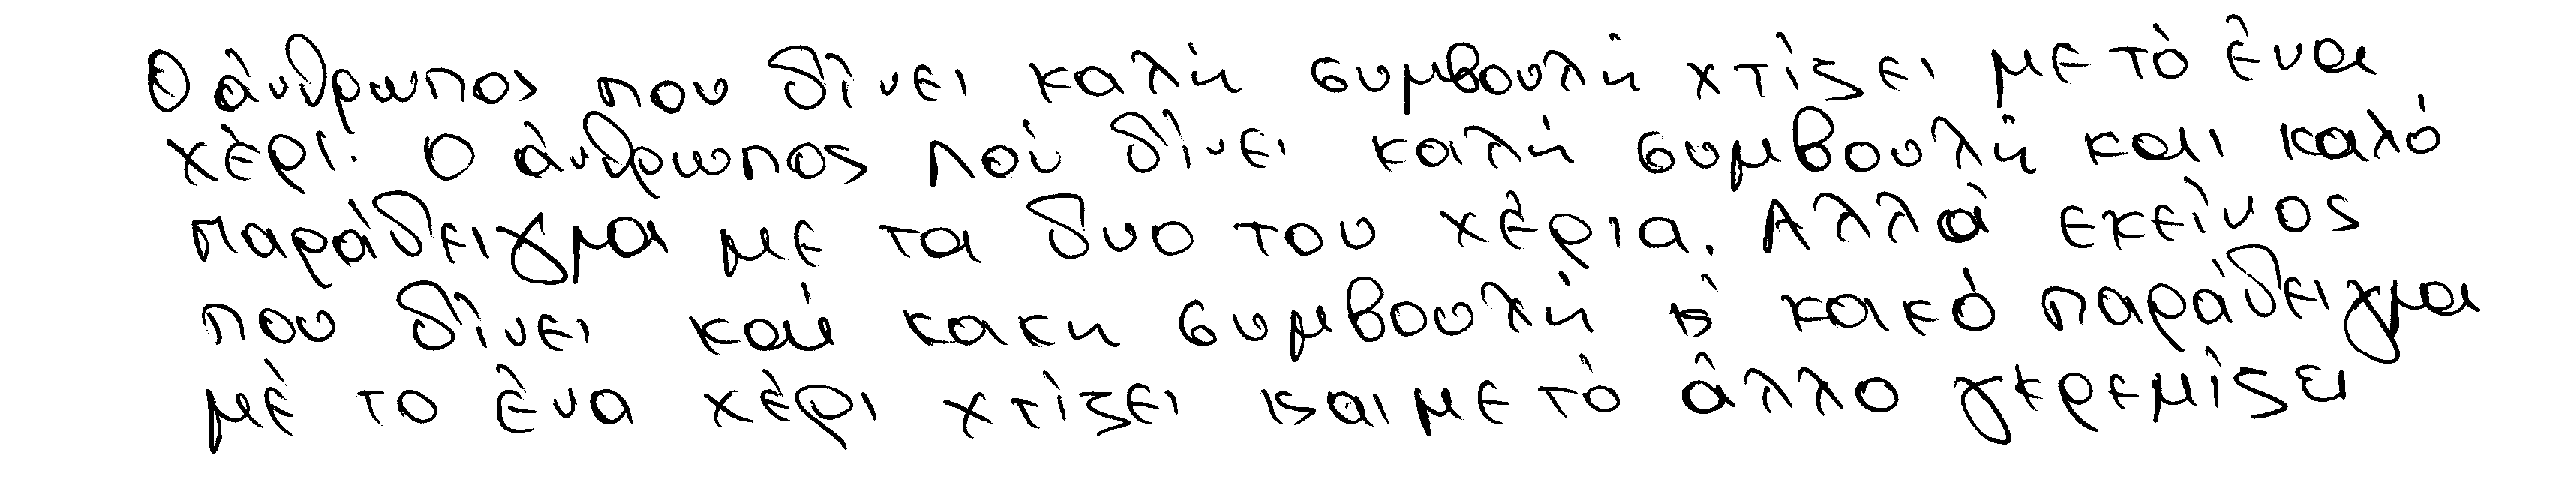 Ο άνθρωπος που δίνει καλή συμβουλή χτίζει με τό ένα
χέρι. Ο άνθρωπος πού δίνει καλή συμβουλή και καλό
παράδειγμα με τα δυο του χέρια. Αλλά εκείνος
που δίνει καί κακη συμβουλή κακό παράδειγμα
μέ το ένα χέρι χτίζει και με τό άλλο γκρεμίζει